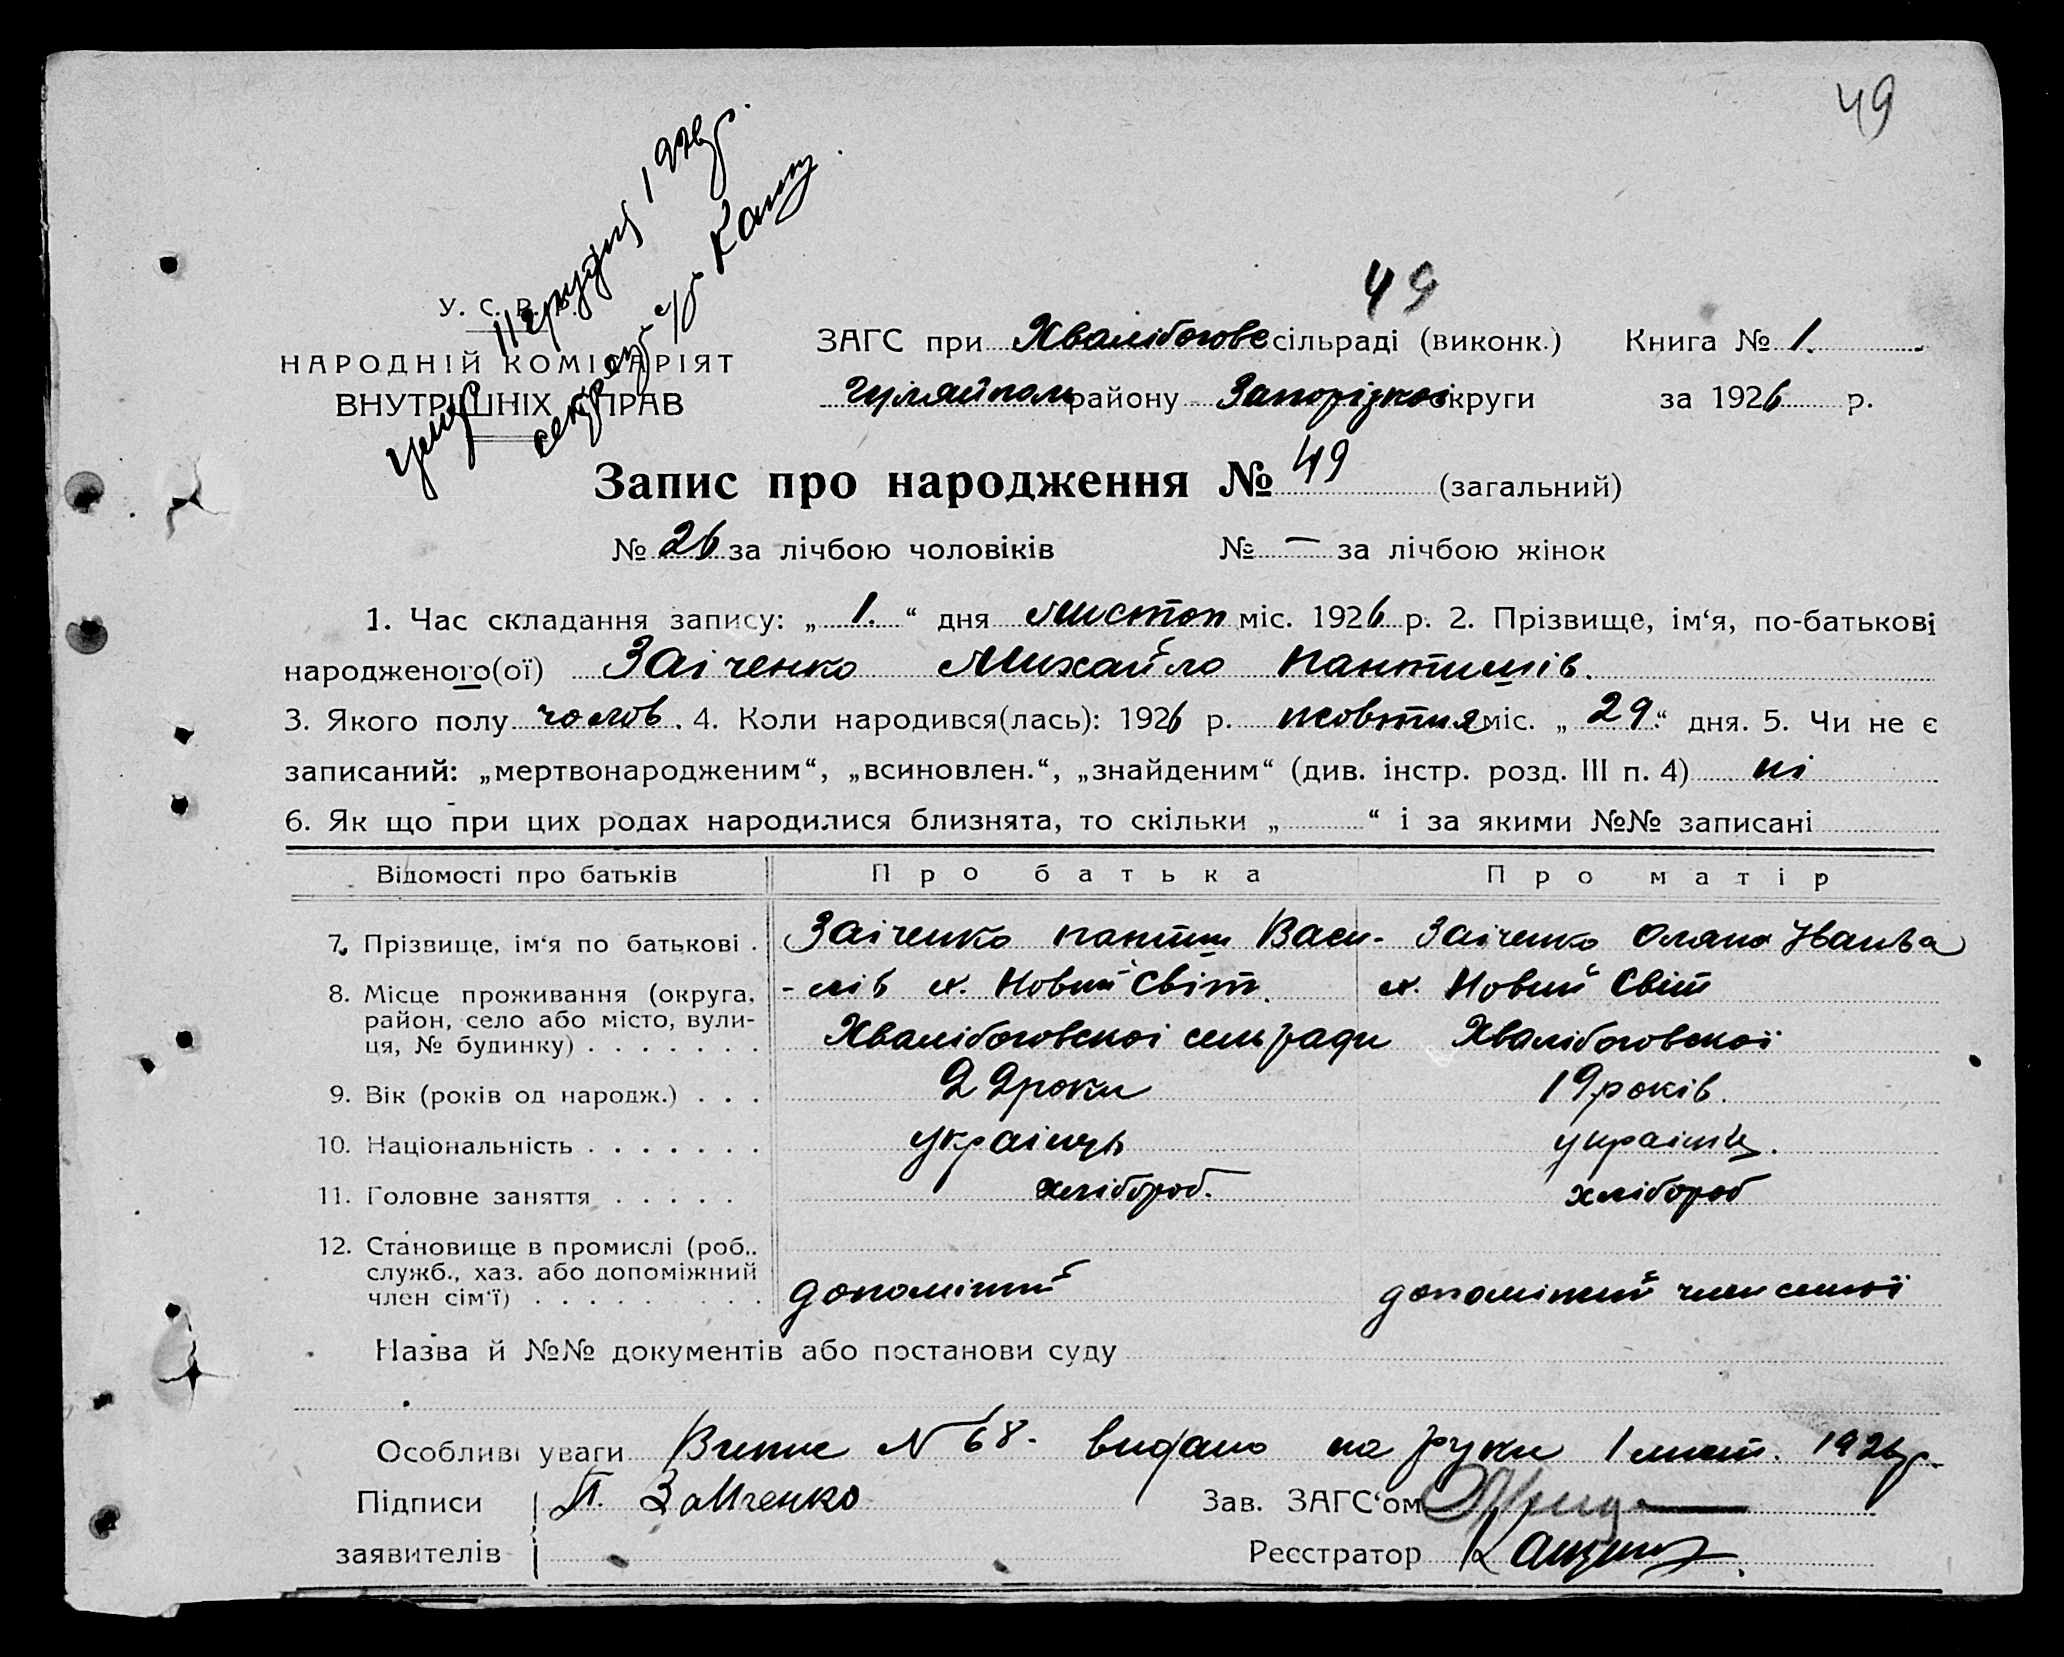 49
11 грудня 1926 р.
49
У. С. Р. Р.
ЗАГС при Хвалібогове сільраді (виконк.) Книга № 1.
НАРОДНІЙ КОМІСАРІЯТ
ВНУТРІШНІХ СПРАВ
Гуляйполь району Запорізкої округи за 1926 р.
Запис про народження № 49 (загальний)
№ 26 за лічбою чоловіків № — за лічбою жінок
1. Час складання запису: „ 1. “ дня Листоп міс. 1926 р. 2. Прізвище, ім‘я, по-батькові
народженого(ої) Заіченко Михайло Пантилів.
3. Якого полу чолов. 4. Коли народився(лась): 1926 р. жовтня міс. „ 29.“ дня. 5. Чи не є
записаний: „мертвонародженим“, „всиновлен.“, „знайденим“ (див. інстр. розд. III п. 4) ні
6. Як що при цих родах народилися близнята, то скільки „ “ і за якими №№ записані
Відомості про батьків Про батька Про матір
7. Прізвище, ім‘я по батькові . Заіченко Васи- Заіченко Іванівна
8. Місце проживання (округа, -лів х. Новий Світ. х. Новий Світ
район, село або місто, вули-
ця, № будинку) . . . . . . . Хвалібоговскоі сельради Хвалібоговскої
9. Вік (років од народж.) . . . 22 роки 19 років.
10. Національність . . . . . . . українць українка.
11. Головне заняття . . . . . хлібороб. хлібороб
12. Становище в промислі (роб.,
служб., хаз. або допоміжний
член сім‘ї) . . . . . . . . допоміжний допоміжний член семьї
Назва й №№ документів або постанови суду
Особливі уваги Випис № 68. видано на руки 1 лист. 1926 р.
Підписи П. Заиченко Зав. ЗАГС‘ом
заявителів Реєстратор